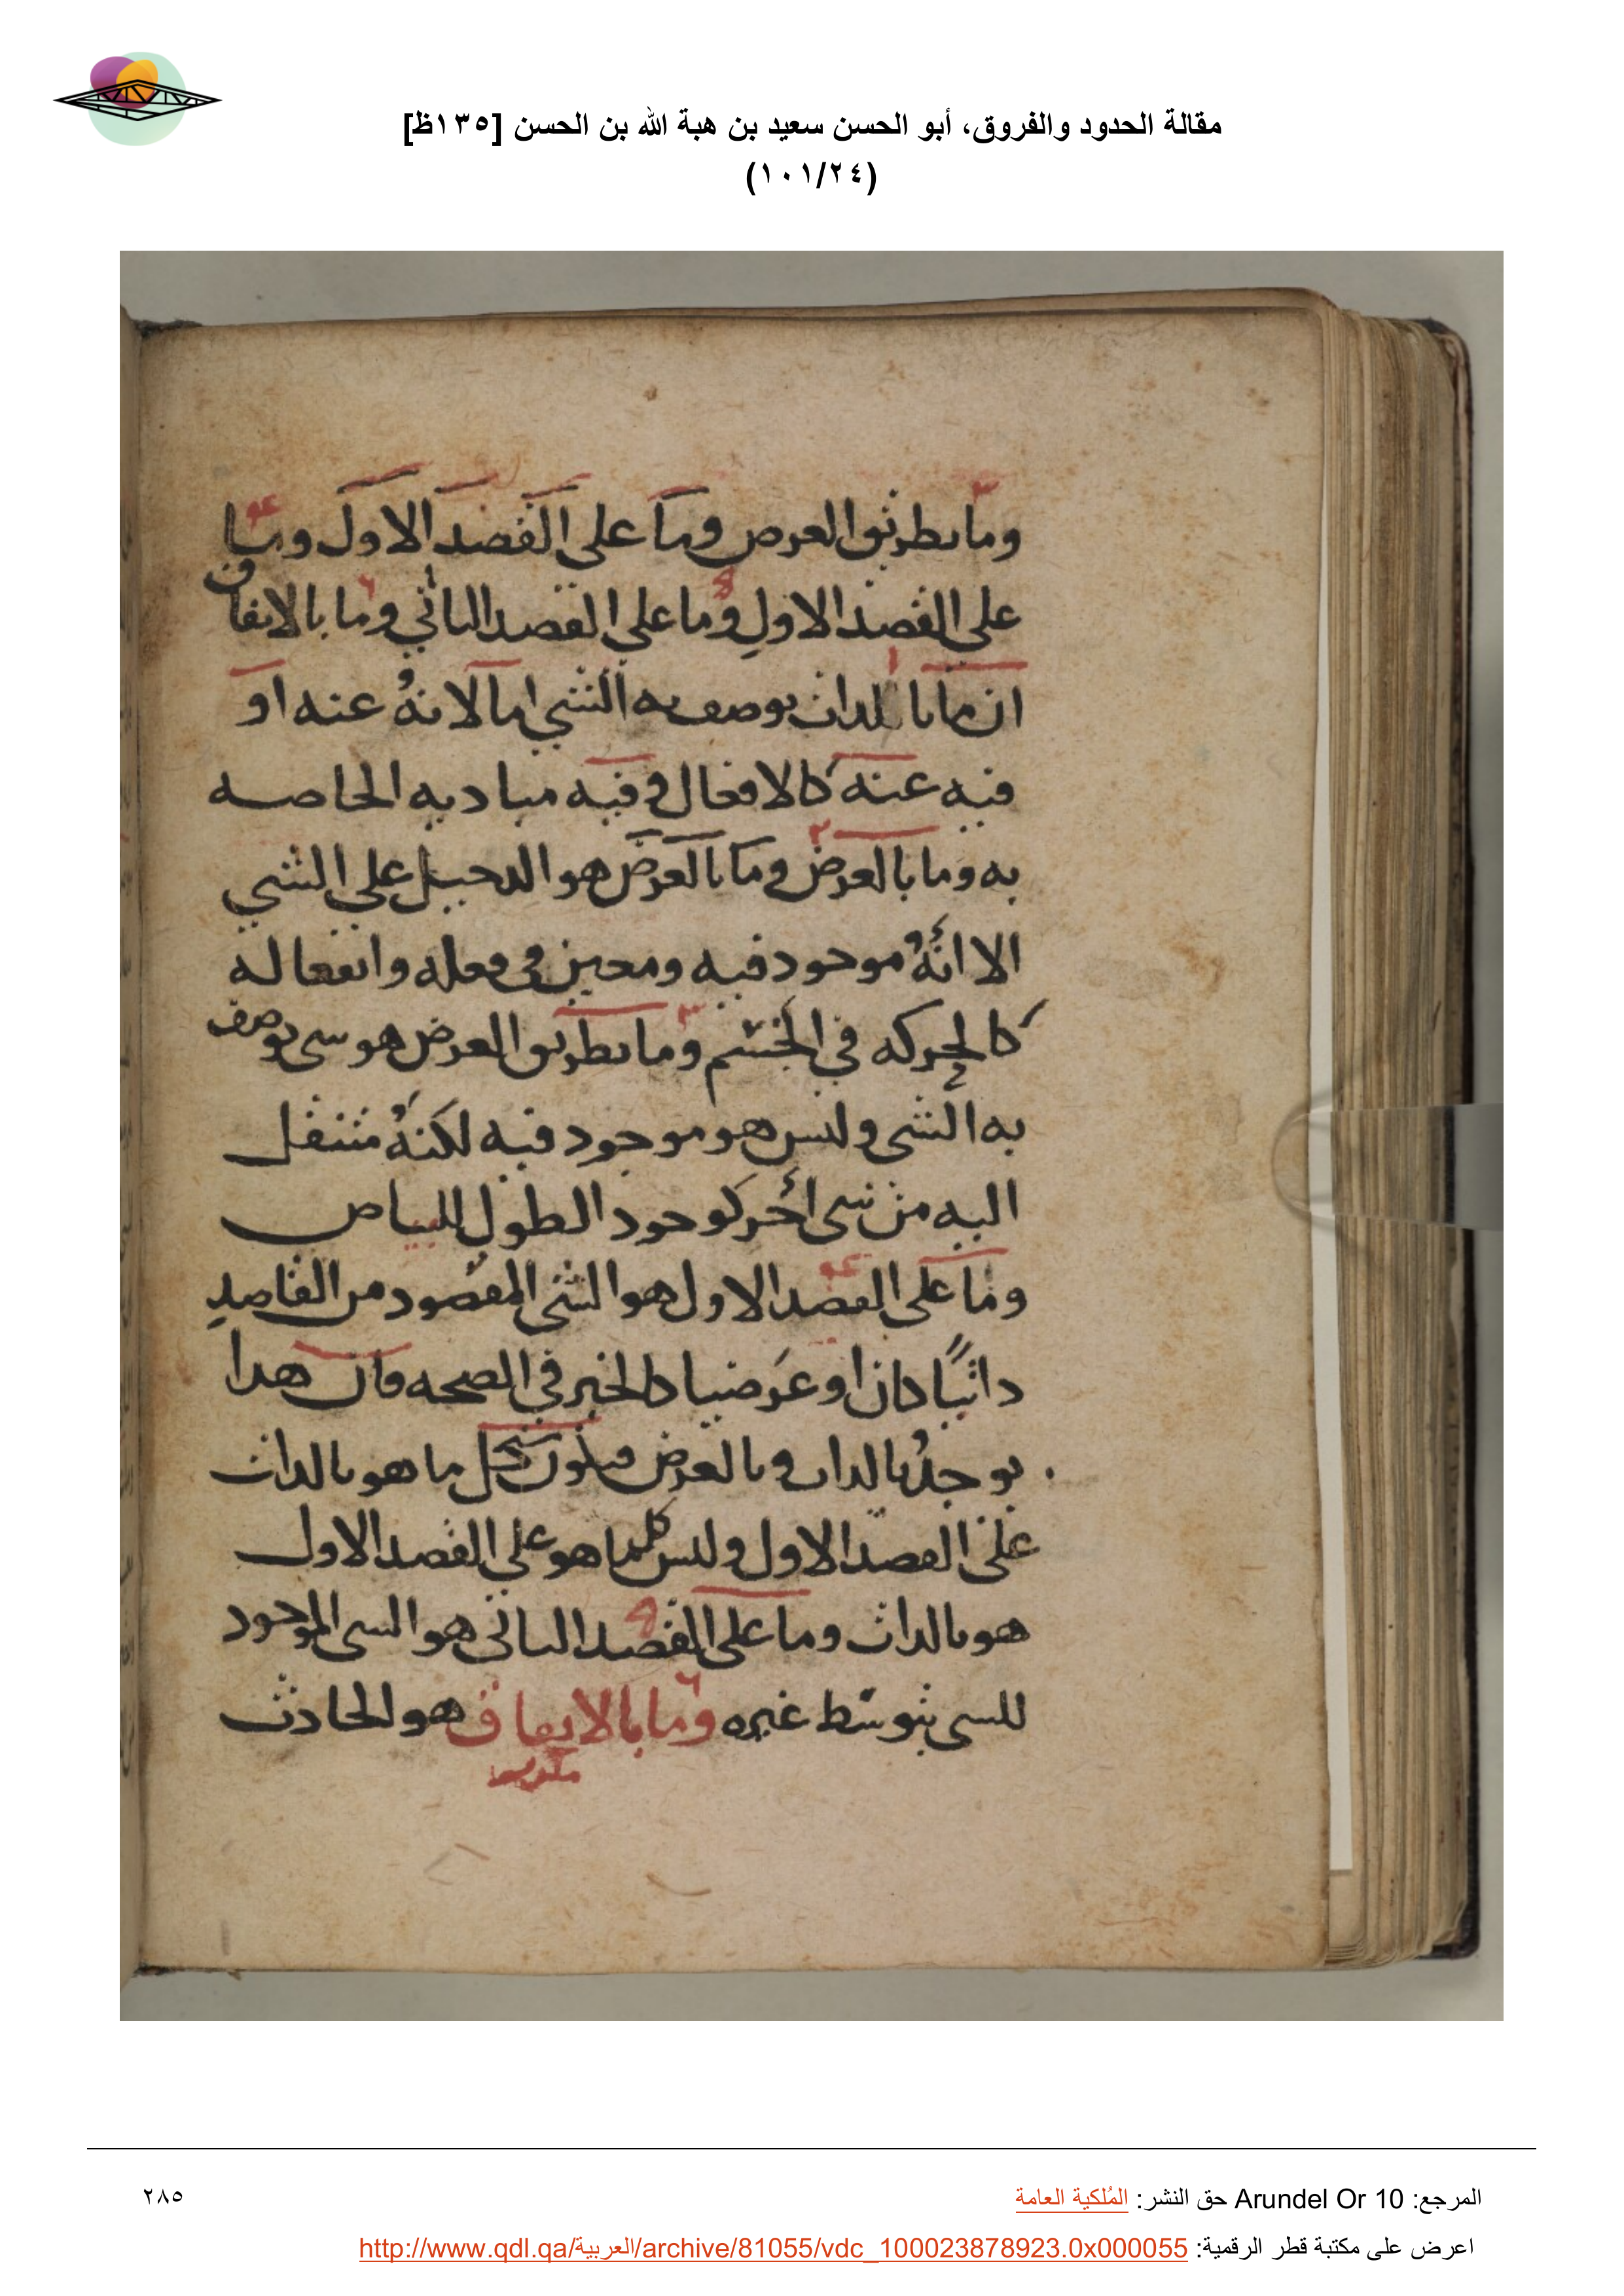 مقالة الحدود والفروق، أبو الحسن سعيد بن هبة الله بن الحسن [١٣٥ظ]
(١٠١/٢٤)
وما بطريق العرض وما على القصد الاول وما
على القصد الاول وما على القصد الثاني وما بالاتفاق
ان ما بالذات يوصف به الشي اما لانهُ عنه او
فيه عنه كالافعال وفيه مباديه الخاصه
به وما بالعرض وما بالعرض هو الدخيل على الشي
الا انهُ موجود فيه ومعين في فعله وانفعاله
كالحركه في الجسم وما بطريق العرض هو شي يوصف
به الشي وليس هو موجود فيه لكنهُ متنقل
اليه من شي أخر كوجود الطول للبياض
وما على القصد الاول هو الشي المقصود من القاصدِ
ذاتيًا كان او عَرضيا كالخير في الصحه فان هذا
يوجدُ بالذات وبالعرض فيكون كل ما هو بالذات
على القصد الاول وليس كلما هو على القصد الاول
هو بالذات وما على القصد الثاني هو الشي الموجود
للشي بتوسط غيره وما بالاتفاق هو الحادث
المرجع: Arundel Or 10 حق النشر: المُلكية العامة
٢٨٥
اعرض على مكتبة قطر الرقمية: http://www.qdl.qa/العربية/archive/81055/vdc_100023878923.0x000055